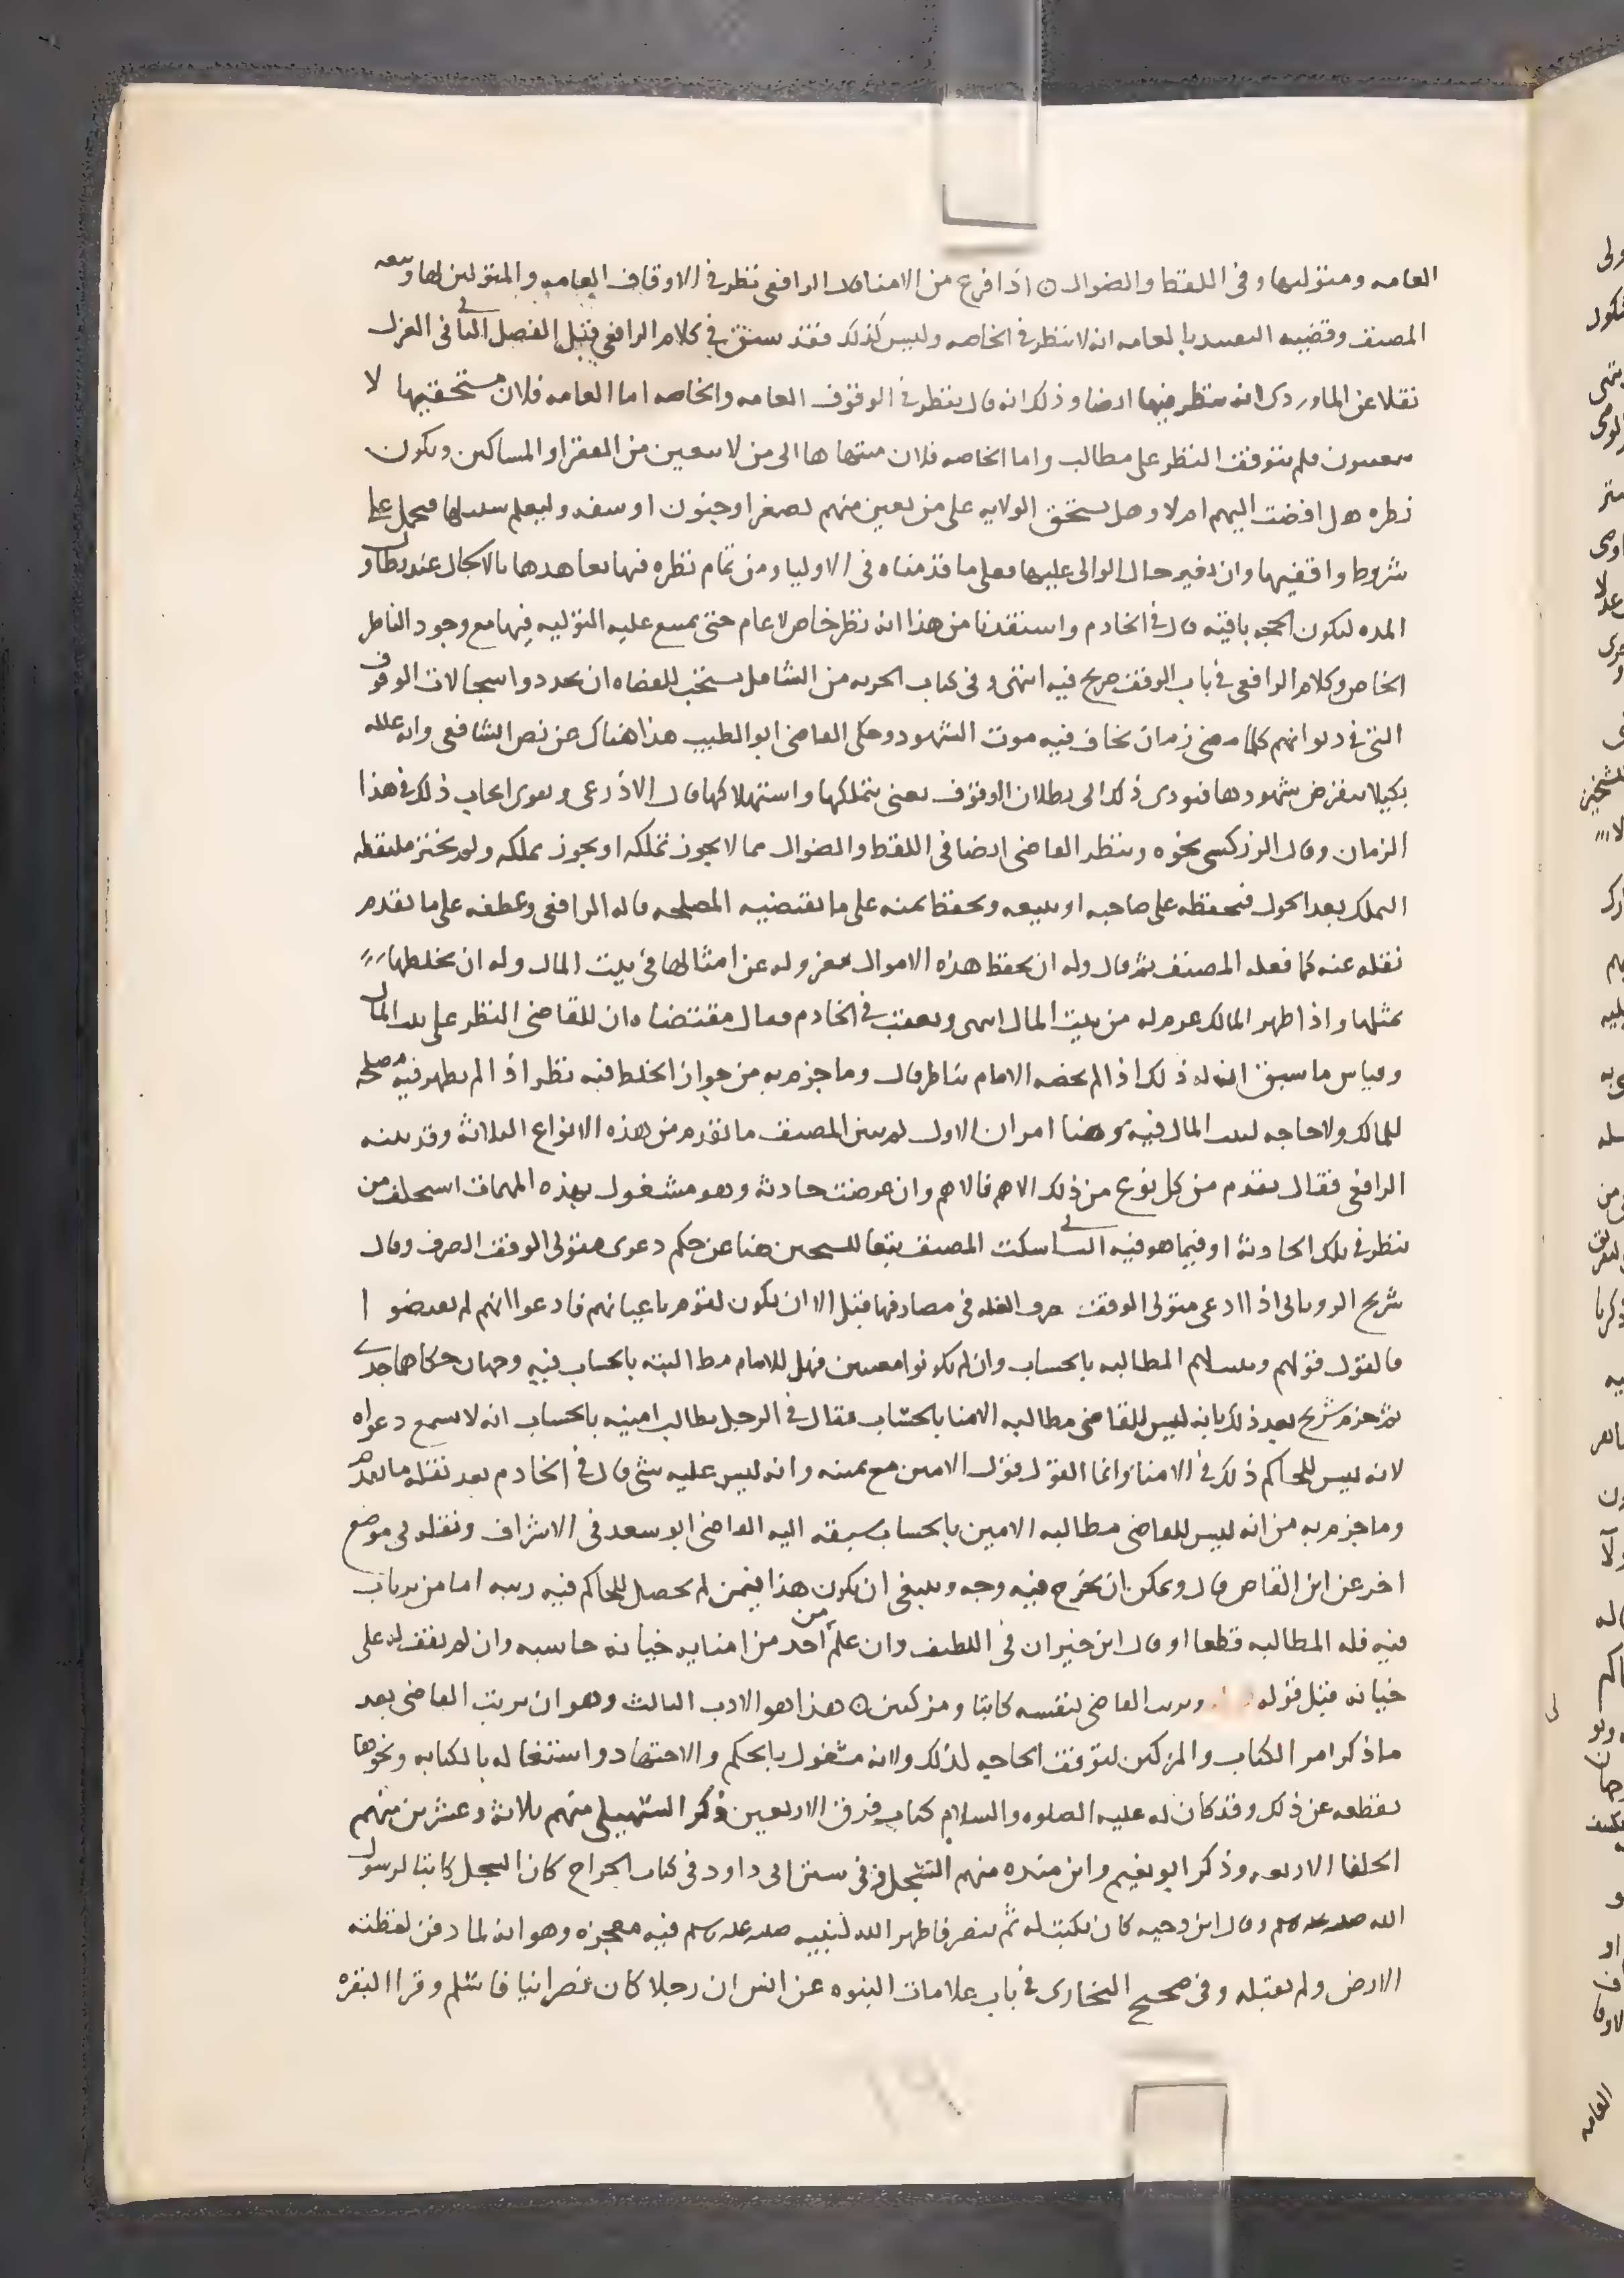 العامه ومتوليها وفي اللقط والضوال ه اذا فرغ من الامنا قال الرافعي نظر في الاوقاف العامه والمتولين لها وتبعه
المصنف وقضيه التقييد بالعامه انه لا ينظر في الخاصه وليس كذلك فقد سبق في كلام الرافعي قبيل الفصل الثاني في العزل
نقلا عن الماوردي انه ينظر فيها ايضا وذلك انه قال ينظر في الوقوف العامه والخاصه اما العامه فلان مستحقيها لا
يتعينون فلم يتوقف النظر على مطالب واما الخاصه فلان منتهاها الى من لا يتعين من الفقرا و المساكين ويكون
نظره هل افضت اليهم ام لا وهل يستحق الولايه على من تعين منهم لصغر او جنون او سفه وليعلم سبيلها فيحمل على
شروط واقفيها وان تغير حال الوالي عليها فعلى ما قدمناه في الاوليا ومن تمام نظره فيها تعاهدها بالاسجال عند تطاول
المده لتكون الحجه باقيه قال في الخادم واستفدنا من هذا انه نظر خاص لا عام حتى يمتنع عليه التوليه فيها مع وجود الناظر
الخاص وكلام الرافعي في باب الوقف صريح فيه انتهى وفي كتاب الحريه من الشامل يستحب للقضاه ان يجددوا سجلات الوقوف
التي في ديوانهم كلما مضى زمان يخاف فيه موت الشهود وحكى القاضي ابو الطيب هذا هناك عن نص الشافعي وانه علله
بكيلا ينقرض شهودها فيودي ذلك الى بطلان الوقوف يعني بتملكها واستهلاكها قال الاذرعي ويقوى ايجاب ذلك في هذا
الزمان وقال الزركشي نحوه وينظر القاضي ايضا في اللقط والضوال مما لا يجوز تملكه او يجوز تملكه ولم يختر ملتقطه
التملك بعد الحول فيحفظه على صاحبه او يبيعه ويحفظ ثمنه على ما تقتضيه المصلحه قاله الرافعي وعطفه على ما تقدم
نقله عنه كما فعله المصنف ثم قال وله ان يحفظ هذه الاموال معزوله عن امثالها في بيت المال وله ان يخلطها
بمثلها واذا ظهر المالك غرم له من بيت المال انتهى وتعقب في الخادم فقال مقتضاه ان للقاضي النظر على بيت المال
وقياس ما سبق ان له ذلك اذا لم يخصه الامام بناظر قال وما جزم به من جواز الخلط فيه نظر اذا لم يظهر فيه مصلحه
للمالك ولا حاجه لبيت المال فيه وهنا امران الاول لم يبين المصنف ما تقدم من هذه الانواع الثلاثه وقد بينه
الرافعي فقال يقدم من كل نوع من ذلك الاهم فالاهم وان عرضت حادثه وهو مشغول بهذه المهمات استخلف من
ينظر في تلك الحادثه او فيما هو فيه الثاني سكت المصنف تبعا للشيخين هنا عن حكم دعوى متولي الوقف الصرف وقال
شريح الروياني اذا ادعى متولي الوقف صرف الغله في مصارفها قبل الا ان يكون لقوم باعيانهم فادعوا انهم لم يقبضوا
فالقول قولهم ويثبت لهم المطالبه بالحساب وان لم يكونوا معينين فهل للامام مطالبته بالحساب فيه وجهان حكاهما جدي
ثم جزم شريح بعد ذلك بانه ليس للقاضي مطالبه الامنا بالحساب فقال في الرجل يطالب امينه بالحساب انه لا تسمع دعواه
لانه ليس للحاكم ذلك في الامنا وانما القول قول الامين مع يمينه وانه ليس عليه شي قال في الخادم بعد نقله ما تقدم
وما جزم به من انه ليس للقاضي مطالبه الامين بالحساب سبقه اليه القاضي ابو سعد في الاشراف ونقله في موضع
اخر عن ابن القاص قال ويمكن ان يخرج فيه وجه وينبغي ان يكون هذا فيمن لم يحصل للحاكم فيه ريبه اما من يرتاب
فيه فله المطالبه قطعا او قال ابن خيران في اللطيف وان علم من احد من امنايه خيانه حاسبه وان لم يقف له على
خيانه قبل قوله ويرتب القاضي لنفسه كاتبا ومزكين ه هذا هو الادب الثالث وهو ان يرتب القاضي بعد
ما ذكر امر الكتاب والمزكين لتوقف الحاجه لذلك ولانه مشغول بالحكم والاجتهاد واشتغاله بالكتابه ونحوها
يقطعه عن ذلك وقد كان له عليه الصلوه والسلام كتاب فوق الاربعين ذكر السهيلي منهم ثلاثه وعشرين منهم
الخلفا الاربعه وذكر ابو نعيم وابن منده منهم السجل ففي سنن ابي داود في كتاب الخراج كان السجل كاتبا لرسول
الله صلى الله عليه وسلم وقال ابن دحيه كان يكتب له ثم تنصر فاظهر الله لنبيه صلى الله عليه وسلم فيه معجزه وهو انه لما دفن لفظته
الارض ولم تقبله وفي صحيح البخاري في باب علامات النبوه عن انس ان رجلا كان نصرانيا فاسلم وقرا البقره